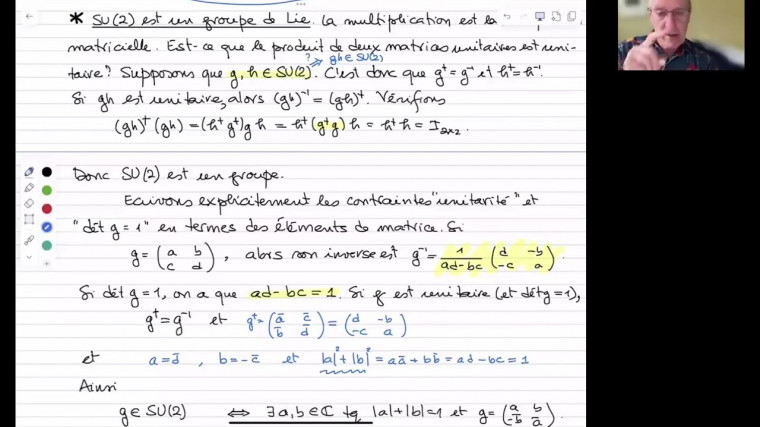 * SU(2) est un groupe de Lie. La multiplication est la
matricielle. Est-ce que le produit de deux matrices unitaires est uni-
? ⇒ gh ∈ SU(2)
taire? Supposons que g, h ∈ SU(2). C'est donc que g† = g⁻¹ et h† = h⁻¹.
Si gh est unitaire, alors (gh)⁻¹ = (gh)†. Vérifions
(gh)†(gh) = (h†g†)gh = h†(g†g)h = h†h = I₂ₓ₂.
Donc SU(2) est un groupe.
Ecrivons explicitement les contraintes "unitarité" et
"dét g = 1" en termes des éléments de matrice. Si
g = (a b; c d), alors son inverse est g⁻¹ = 1/(ad-bc) (d -b; -c a).
Si dét g = 1, on a que ad-bc = 1. Si g est unitaire (et dét g = 1),
g† = g⁻¹ et g† = (ā c̄; b̄ d̄) = (d -b; -c a)
et a = d̄, b = -c̄ et |a|² + |b|² = aā + bb̄ = ad-bc = 1
Ainsi
g ∈ SU(2) ⟺ ∃ a, b ∈ ℂ tq |a|+|b|=1 et g = (a b; -b̄ ā).